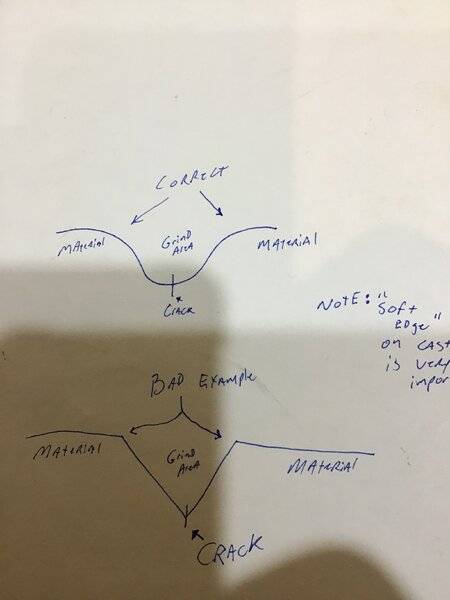 CORRECT
MATERIAL
GRIND
AREA
MATERIAL
CRACK
NOTE: "SOFT
EDGE"
ON CAST
IS VERY
IMPOR
BAD EXAMPLE
MATERIAL
GRIND
AREA
MATERIAL
CRACK